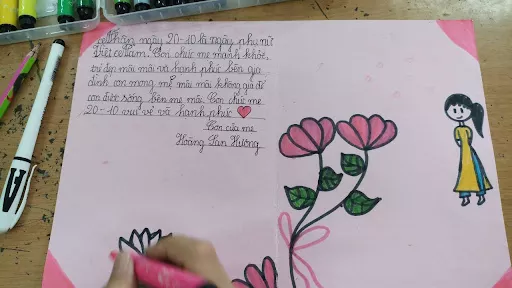 Nhân ngày 20-10 là ngày phụ nữ
Việt Nam. Con chúc mẹ mạnh khỏe,
trẻ đẹp mãi mãi và hạnh phúc bên gia
đình con mong mẹ mãi mãi không già để
con được sống bên mẹ mãi. Con chúc mẹ
20-10 vui vẻ và hạnh phúc
Con của mẹ
Hoàng Lan Hương